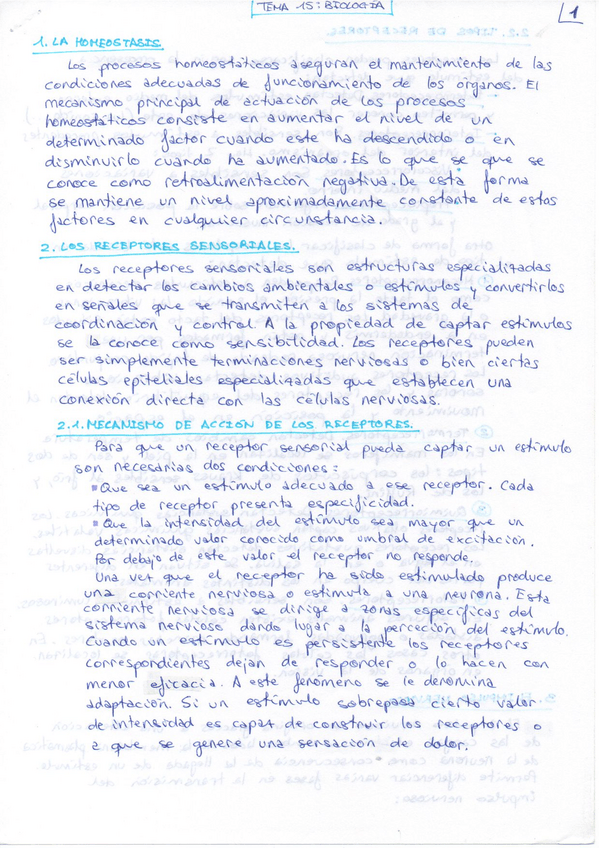 TEMA 15: BIOLOGÍA
1
1. LA HOMEOSTASIS
Los procesos homeostáticos aseguran el mantenimiento de las
condiciones adecuadas de funcionamiento de los órganos. El
mecanismo principal de actuación de los procesos
homeostáticos consiste en aumentar el nivel de un
determinado factor cuando este ha descendido o en
disminuirlo cuando ha aumentado. Es lo que se que se
conoce como retroalimentación negativa. De esta forma
se mantiene un nivel aproximadamente constante de estos
factores en cualquier circunstancia.
2. LOS RECEPTORES SENSORIALES.
Los receptores sensoriales son estructuras especializadas
en detectar los cambios ambientales o estímulos y convertirlos
en señales que se transmiten a los sistemas de
coordinación y control. A la propiedad de captar estímulos
se la conoce como sensibilidad. Los receptores pueden
ser simplemente terminaciones nerviosas o bien ciertas
células epiteliales especializadas que establecen una
conexión directa con las células nerviosas.
2.1. MECANISMO DE ACCIÓN DE LOS RECEPTORES.
Para que un receptor sensorial pueda captar un estímulo
son necesarias dos condiciones:
▪ Que sea un estímulo adecuado a ese receptor. Cada
tipo de receptor presenta especificidad.
▪ Que la intensidad del estímulo sea mayor que un
determinado valor conocido como umbral de excitación.
Por debajo de este valor el receptor no responde.
Una vez que el receptor ha sido estimulado produce
una corriente nerviosa o estimula a una neurona. Esta
corriente nerviosa se dirige a zonas específicas del
sistema nervioso dando lugar a la perceción del estímulo.
Cuando un estímulo es persistente los receptores
correspondientes dejan de responder o lo hacen con
menor eficacia. A este fenómeno se le denomina
adaptación. Si un estímulo sobrepasa cierto valor
de intensidad es capaz de construir los receptores o
a que se genere una sensación de dolor.